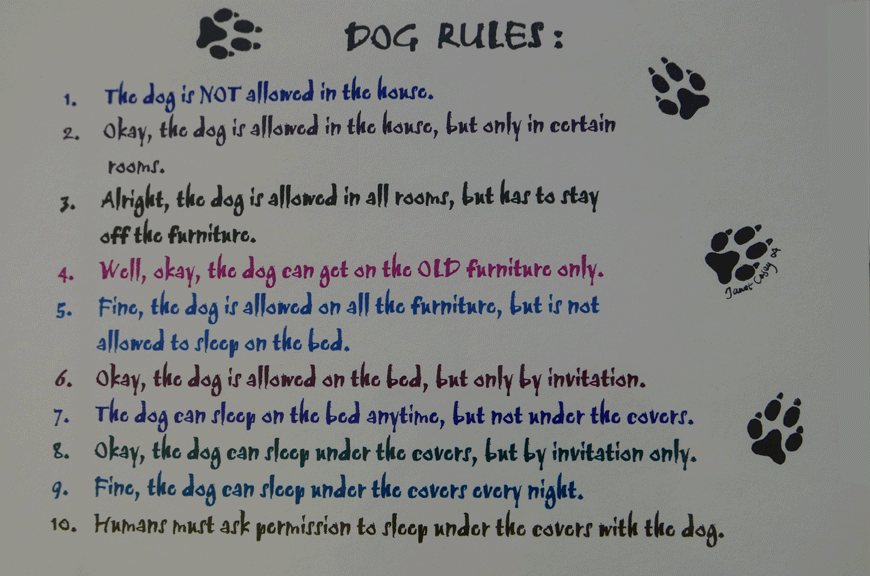 DOG RULES:
1. The dog is NOT allowed in the house.
2. Okay, the dog is allowed in the house, but only in certain
rooms.
3. Alright, the dog is allowed in all rooms, but has to stay
off the furniture.
4. Well, okay, the dog can get on the OLD furniture only.
5. Fine, the dog is allowed on all the furniture, but is not
allowed to sleep on the bed.
6. Okay, the dog is allowed on the bed, but only by invitation.
7. The dog can sleep on the bed anytime, but not under the covers.
8. Okay, the dog can sleep under the covers, but by invitation only.
9. Fine, the dog can sleep under the covers every night.
10. Humans must ask permission to sleep under the covers with the dog.